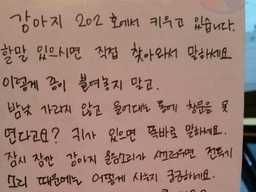 강아지 202호에서 키우고 있습니다.
할말 있으시면 직접 찾아와서 말하세요
이렇게 종이 붙여놓지 말고.
밤낮 가리지 않고 들어대는 통에 창문을 못
연다고요? 귀가 있으면 똑바로 말하세요.
잠시 잠깐 강아지 울음소리 시끄러우면 전투기
소리 때문에는 어떻게 사는지 궁금하네요.